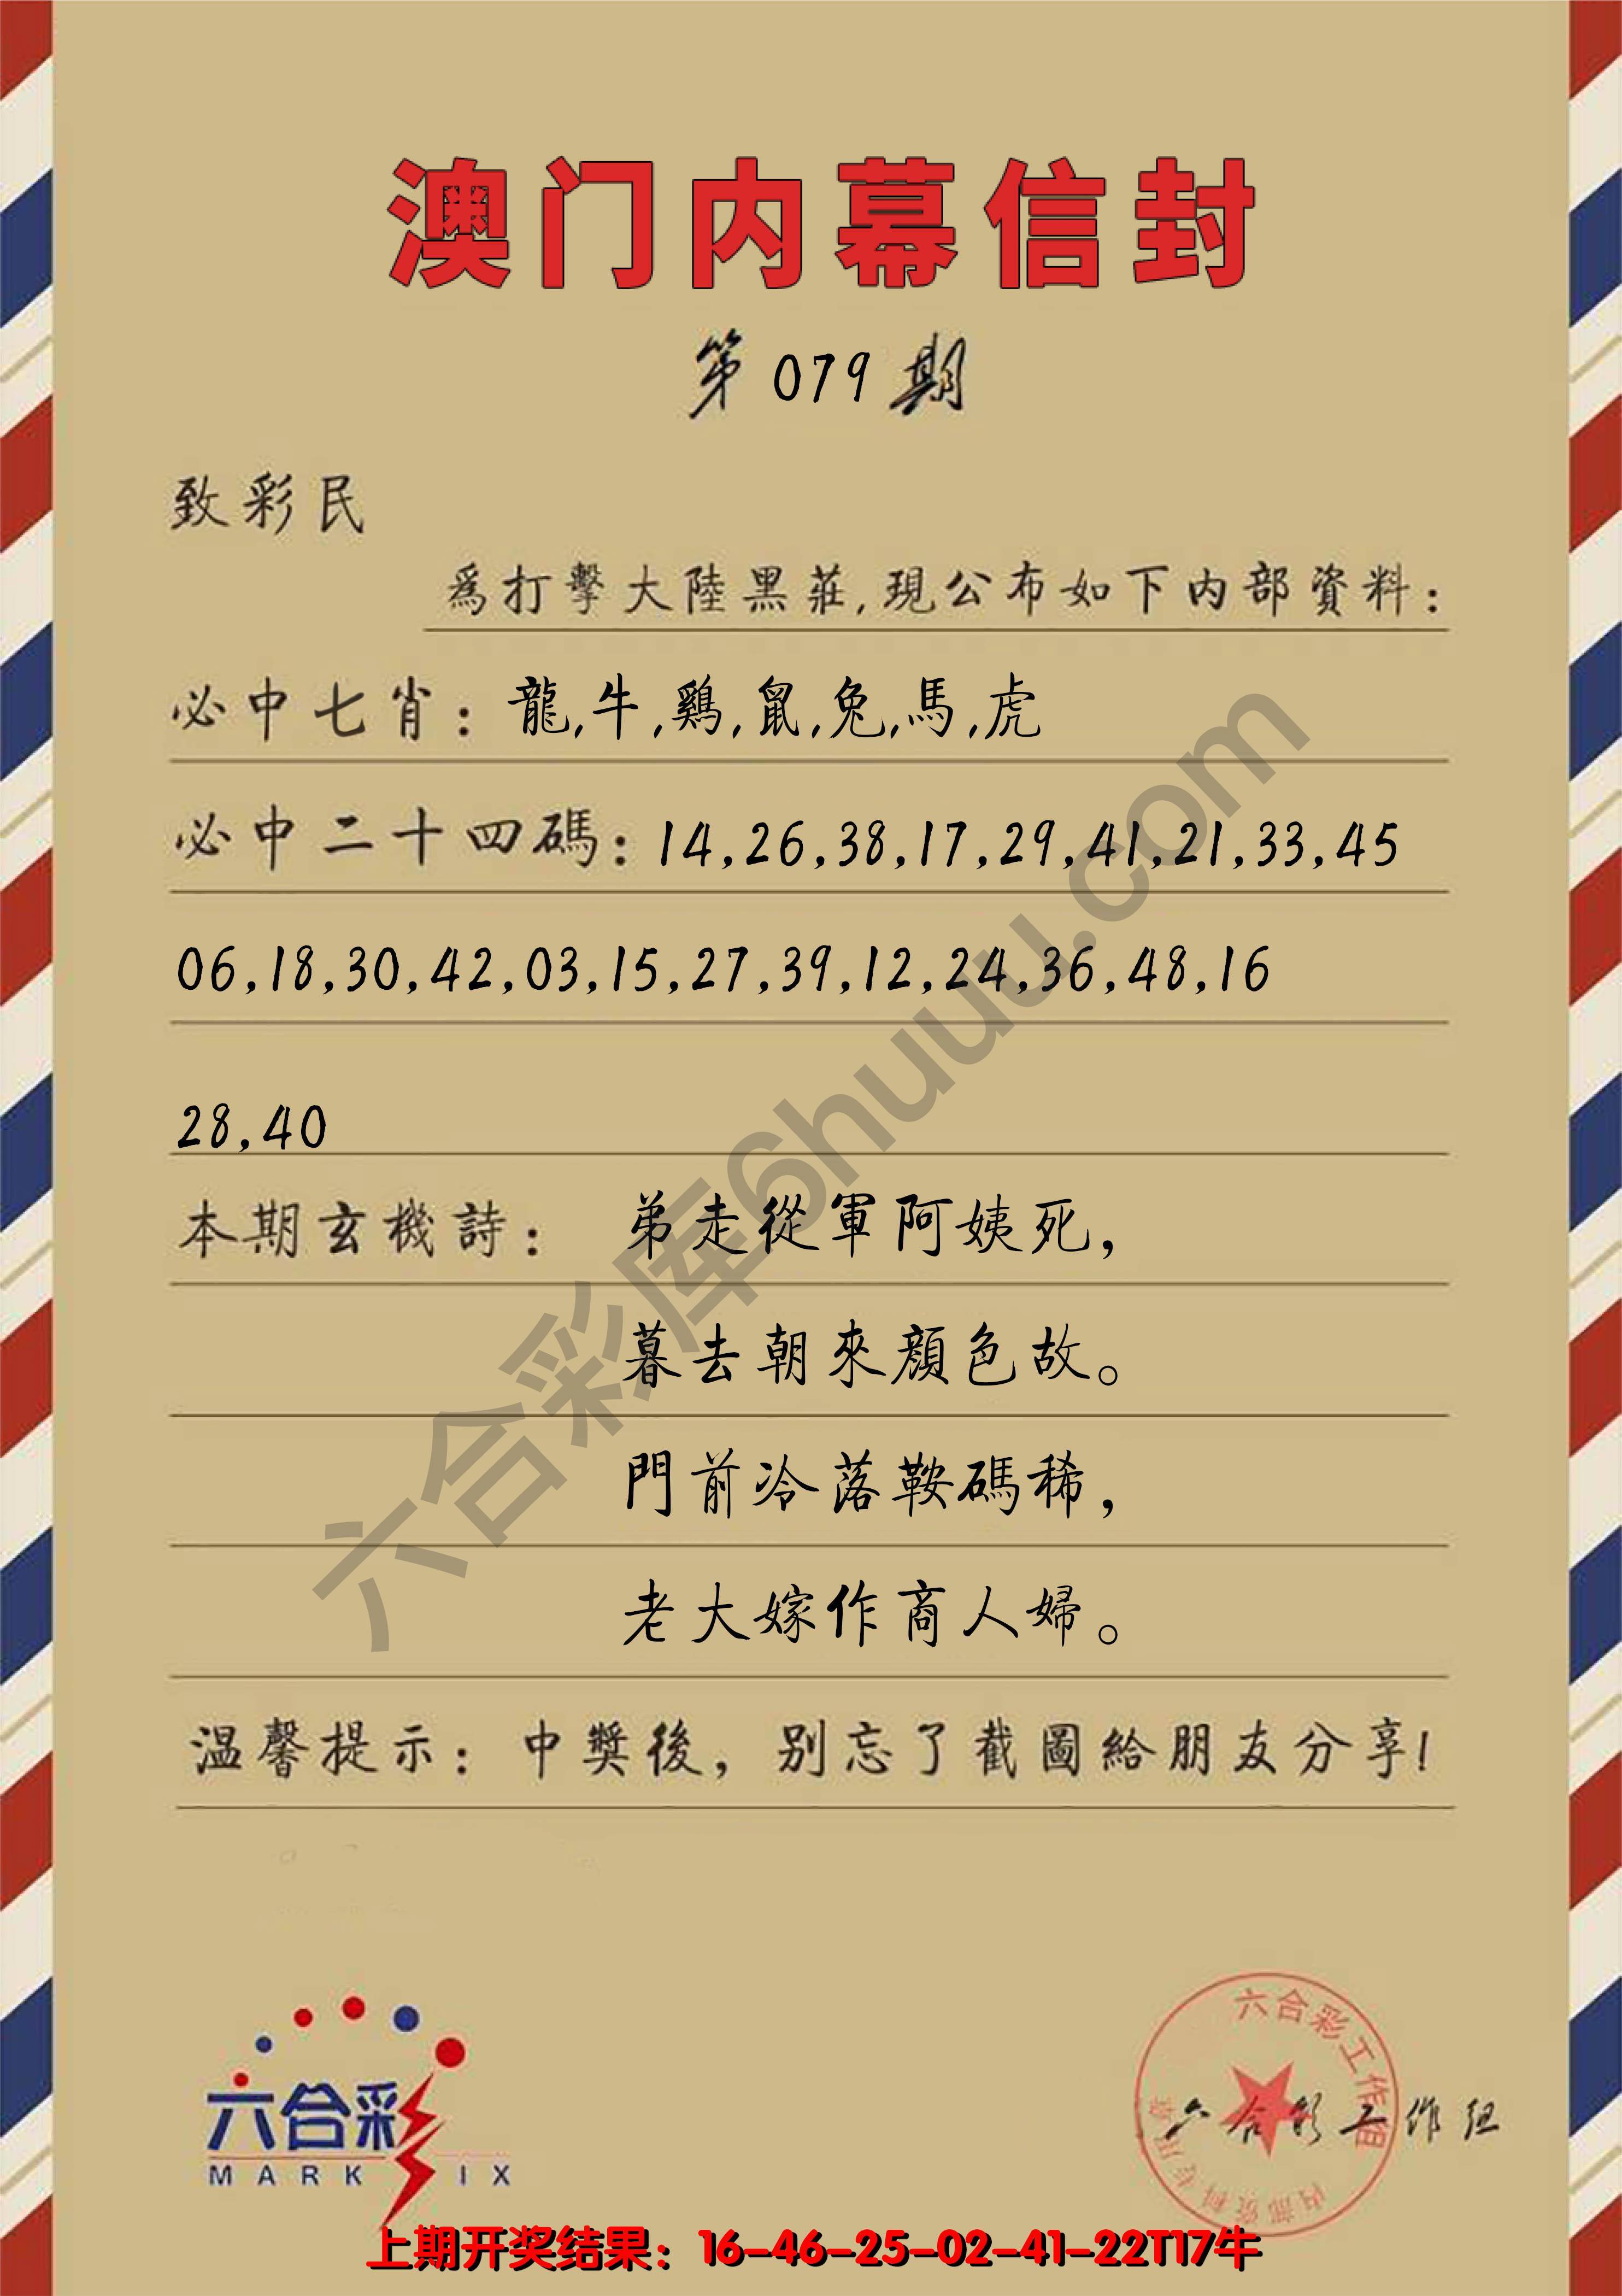 澳门内幕信封
第079期
致彩民
爲打擊大陸黑莊,現公布如下内部資料:
必中七肖:龍,牛,鷄,鼠,兔,馬,虎
必中二十四碼:14,26,38,17,29,41,21,33,45
06,18,30,42,03,15,27,39,12,24,36,48,16
28,40
本期玄機詩: 弟走從軍阿姨死,
暮去朝來顔色故。
門前冷落鞍碼稀,
老大嫁作商人婦。
温馨提示:中獎後,别忘了截圖給朋友分享!
六合彩库6huuu.com
六合彩
MARK IX
六合彩工作组
内部资料专用章
六合彩工作组
上期开奖结果:16-46-25-02-41-22T17牛